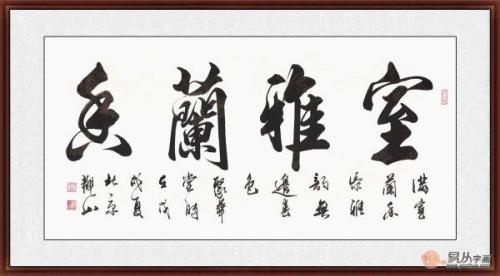 室雅蘭香
滿室
蘭香
添雅
韵無
邊春
色
聚華
堂時
在戊
戌夏
北京
觀山
易从字画